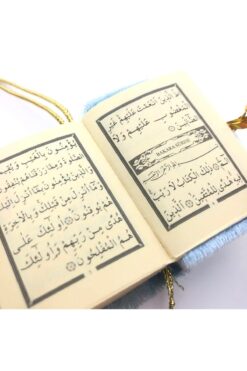 طَ الَّذِينَ اَنْعَمْتَ عَلَيْهِمْ غَيْرِ
الْمَغْضُوبِ عَلَيْهِمْ وَلَا
الضَّالِّينَ
BAKARA SÛRESİ
الٓمٓ ذٰلِكَ الْكِتَابُ لَا رَيْبَ
فِيهِ هُدًى لِلْمُتَّقِينَ اَلَّذِينَ
يُؤْمِنُونَ بِالْغَيْبِ وَيُقِيمُونَ
الصَّلٰوةَ وَمِمَّا رَزَقْنَاهُمْ يُنْفِقُونَ
وَالَّذِينَ يُؤْمِنُونَ بِمَا اُنْزِلَ اِلَيْكَ
وَمَا اُنْزِلَ مِنْ قَبْلِكَ وَبِالْاٰخِرَةِ
هُمْ يُوقِنُونَ اُولٰٓئِكَ عَلٰى
هُدًى مِنْ رَبِّهِمْ وَاُولٰٓئِكَ
هُمُ الْمُفْلِحُونَ